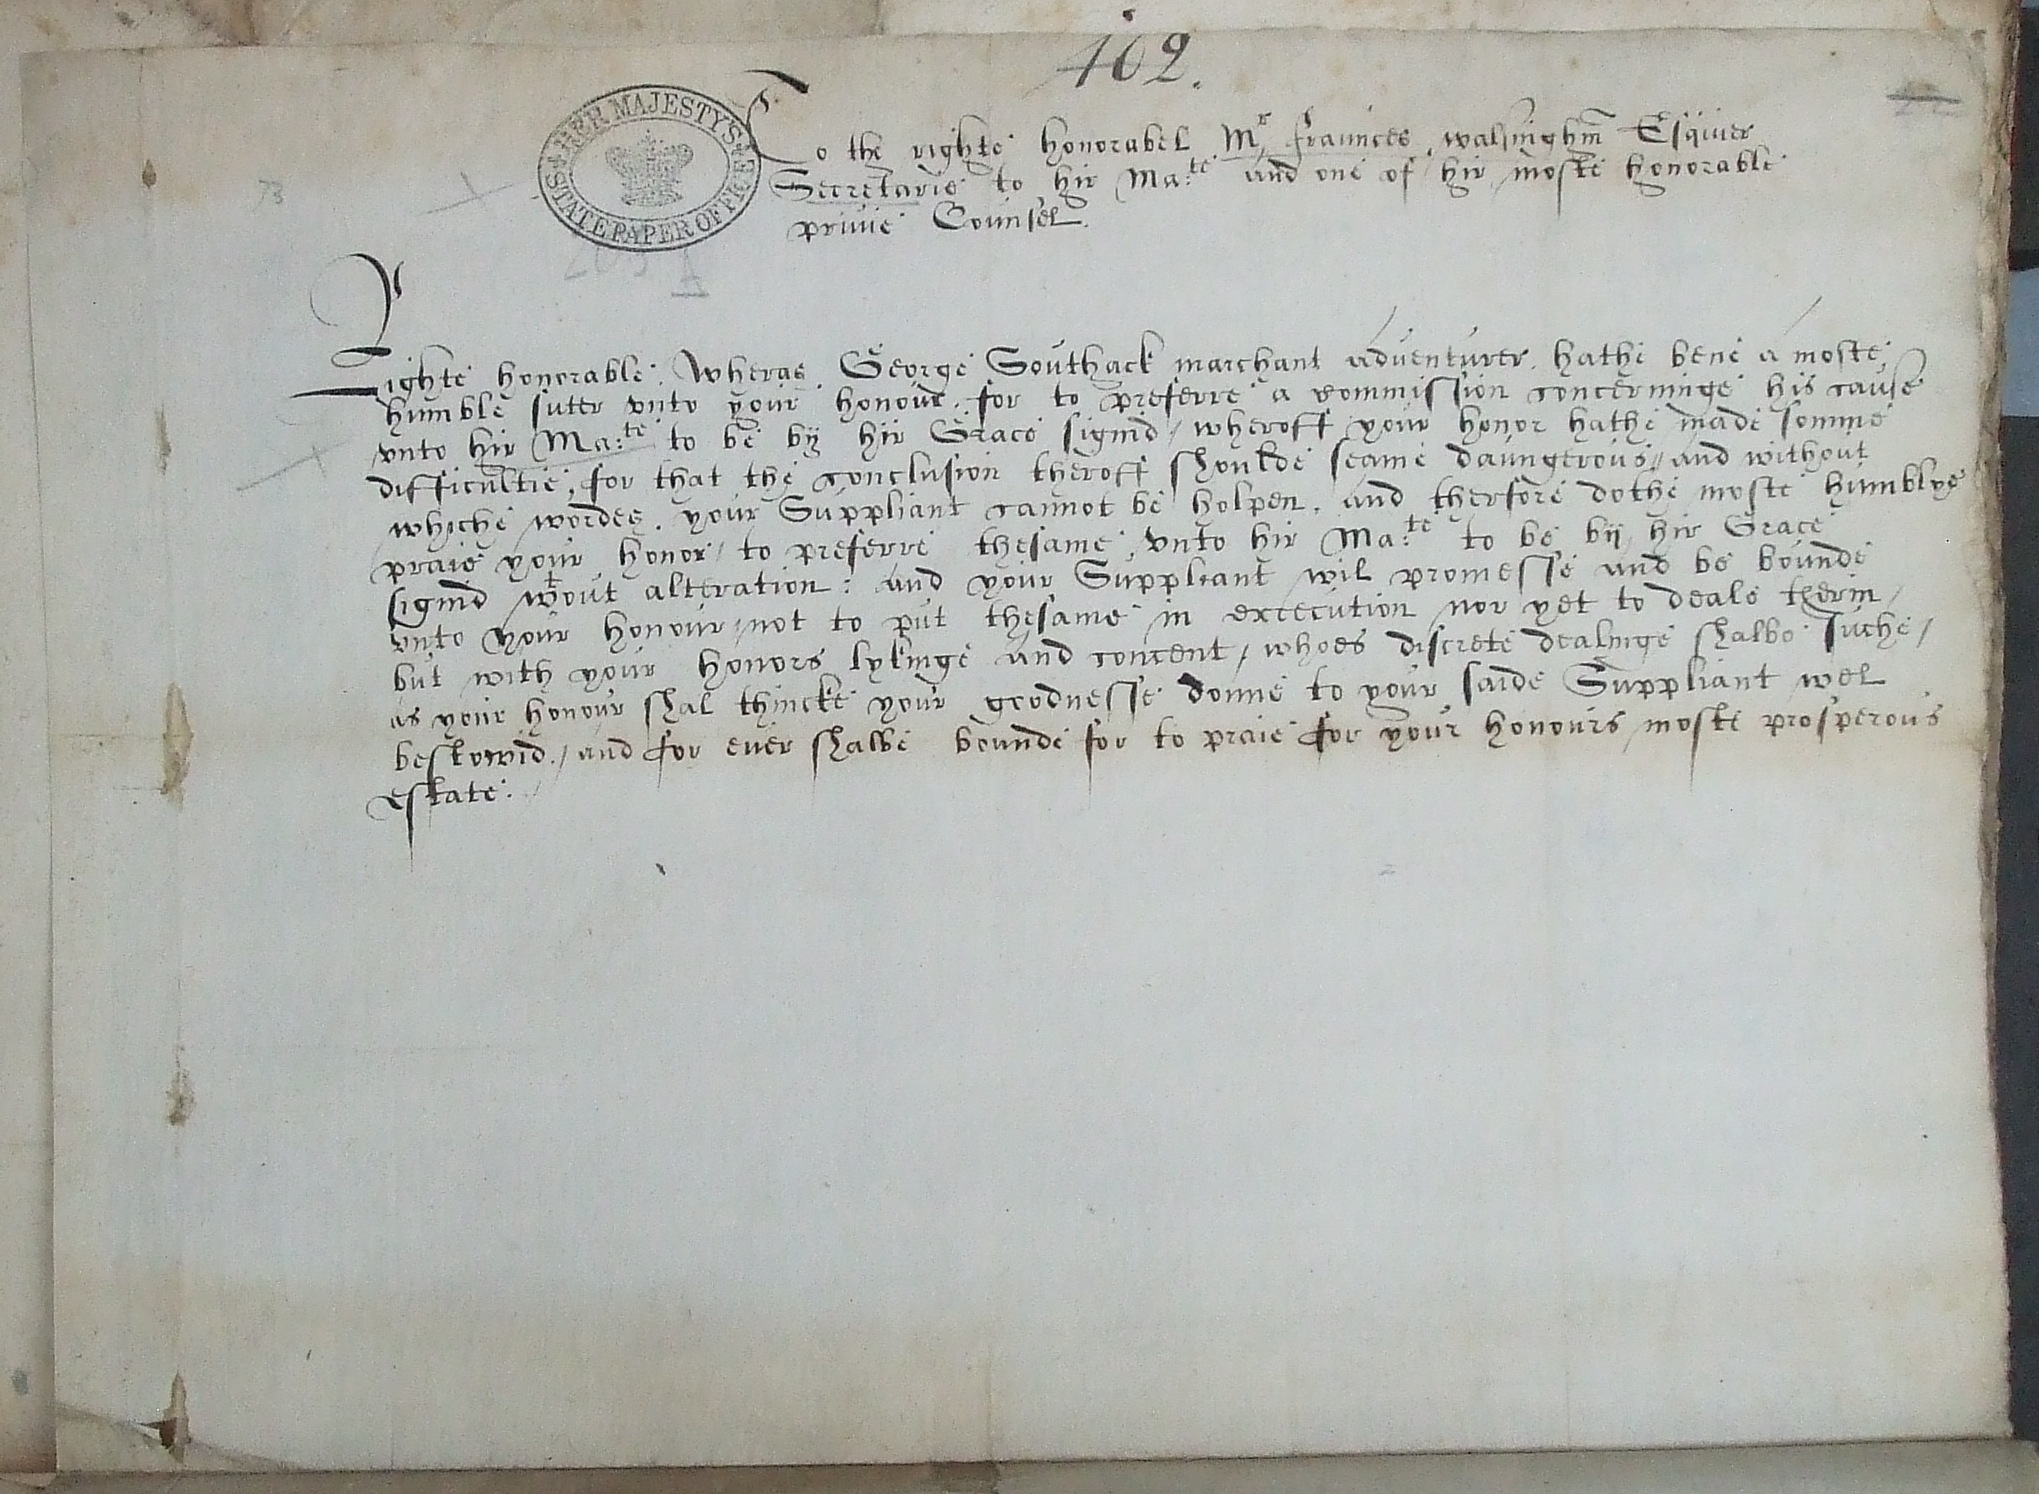 102.
HER MAJESTY'S
STATE PAPER OFFICE
73
To the righte honorabel Mr fraunces walsinghm Esquier
Secretarie to hir Ma:te and one of hir moste honorable
priuie Counsel.
Righte honorable. Wheras George Southack marchant aduenturer hathe bene a moste
humble suter vnto your honour for to preferre a commission concerninge his cause
vnto hir Ma:te to be bij hir Grace signid / wheroff your honor hathe made somme
difficultie, for that the conclusion theroff shoulde seame daungerous // and without
whiche wordes. your Suppliant cannot be holpen. and therfore dothe moste humblye
praie your honor / to preferre thesame vnto hir Ma:te to be bij hir Grace
signid wtout alteration: and your Suppliant wil promesse and be bounde
vnto your honour / not to put thesame in execution nor yet to deale therin /
but with your honors lykinge and concent / whoes discrete dealinge shalbe suche /
as your honour shal thincke your goodnesse donne to your saide Suppliant wel
bestowid. / and for euer shalbe bounde for to praie for your honours moste prosperous
estate: